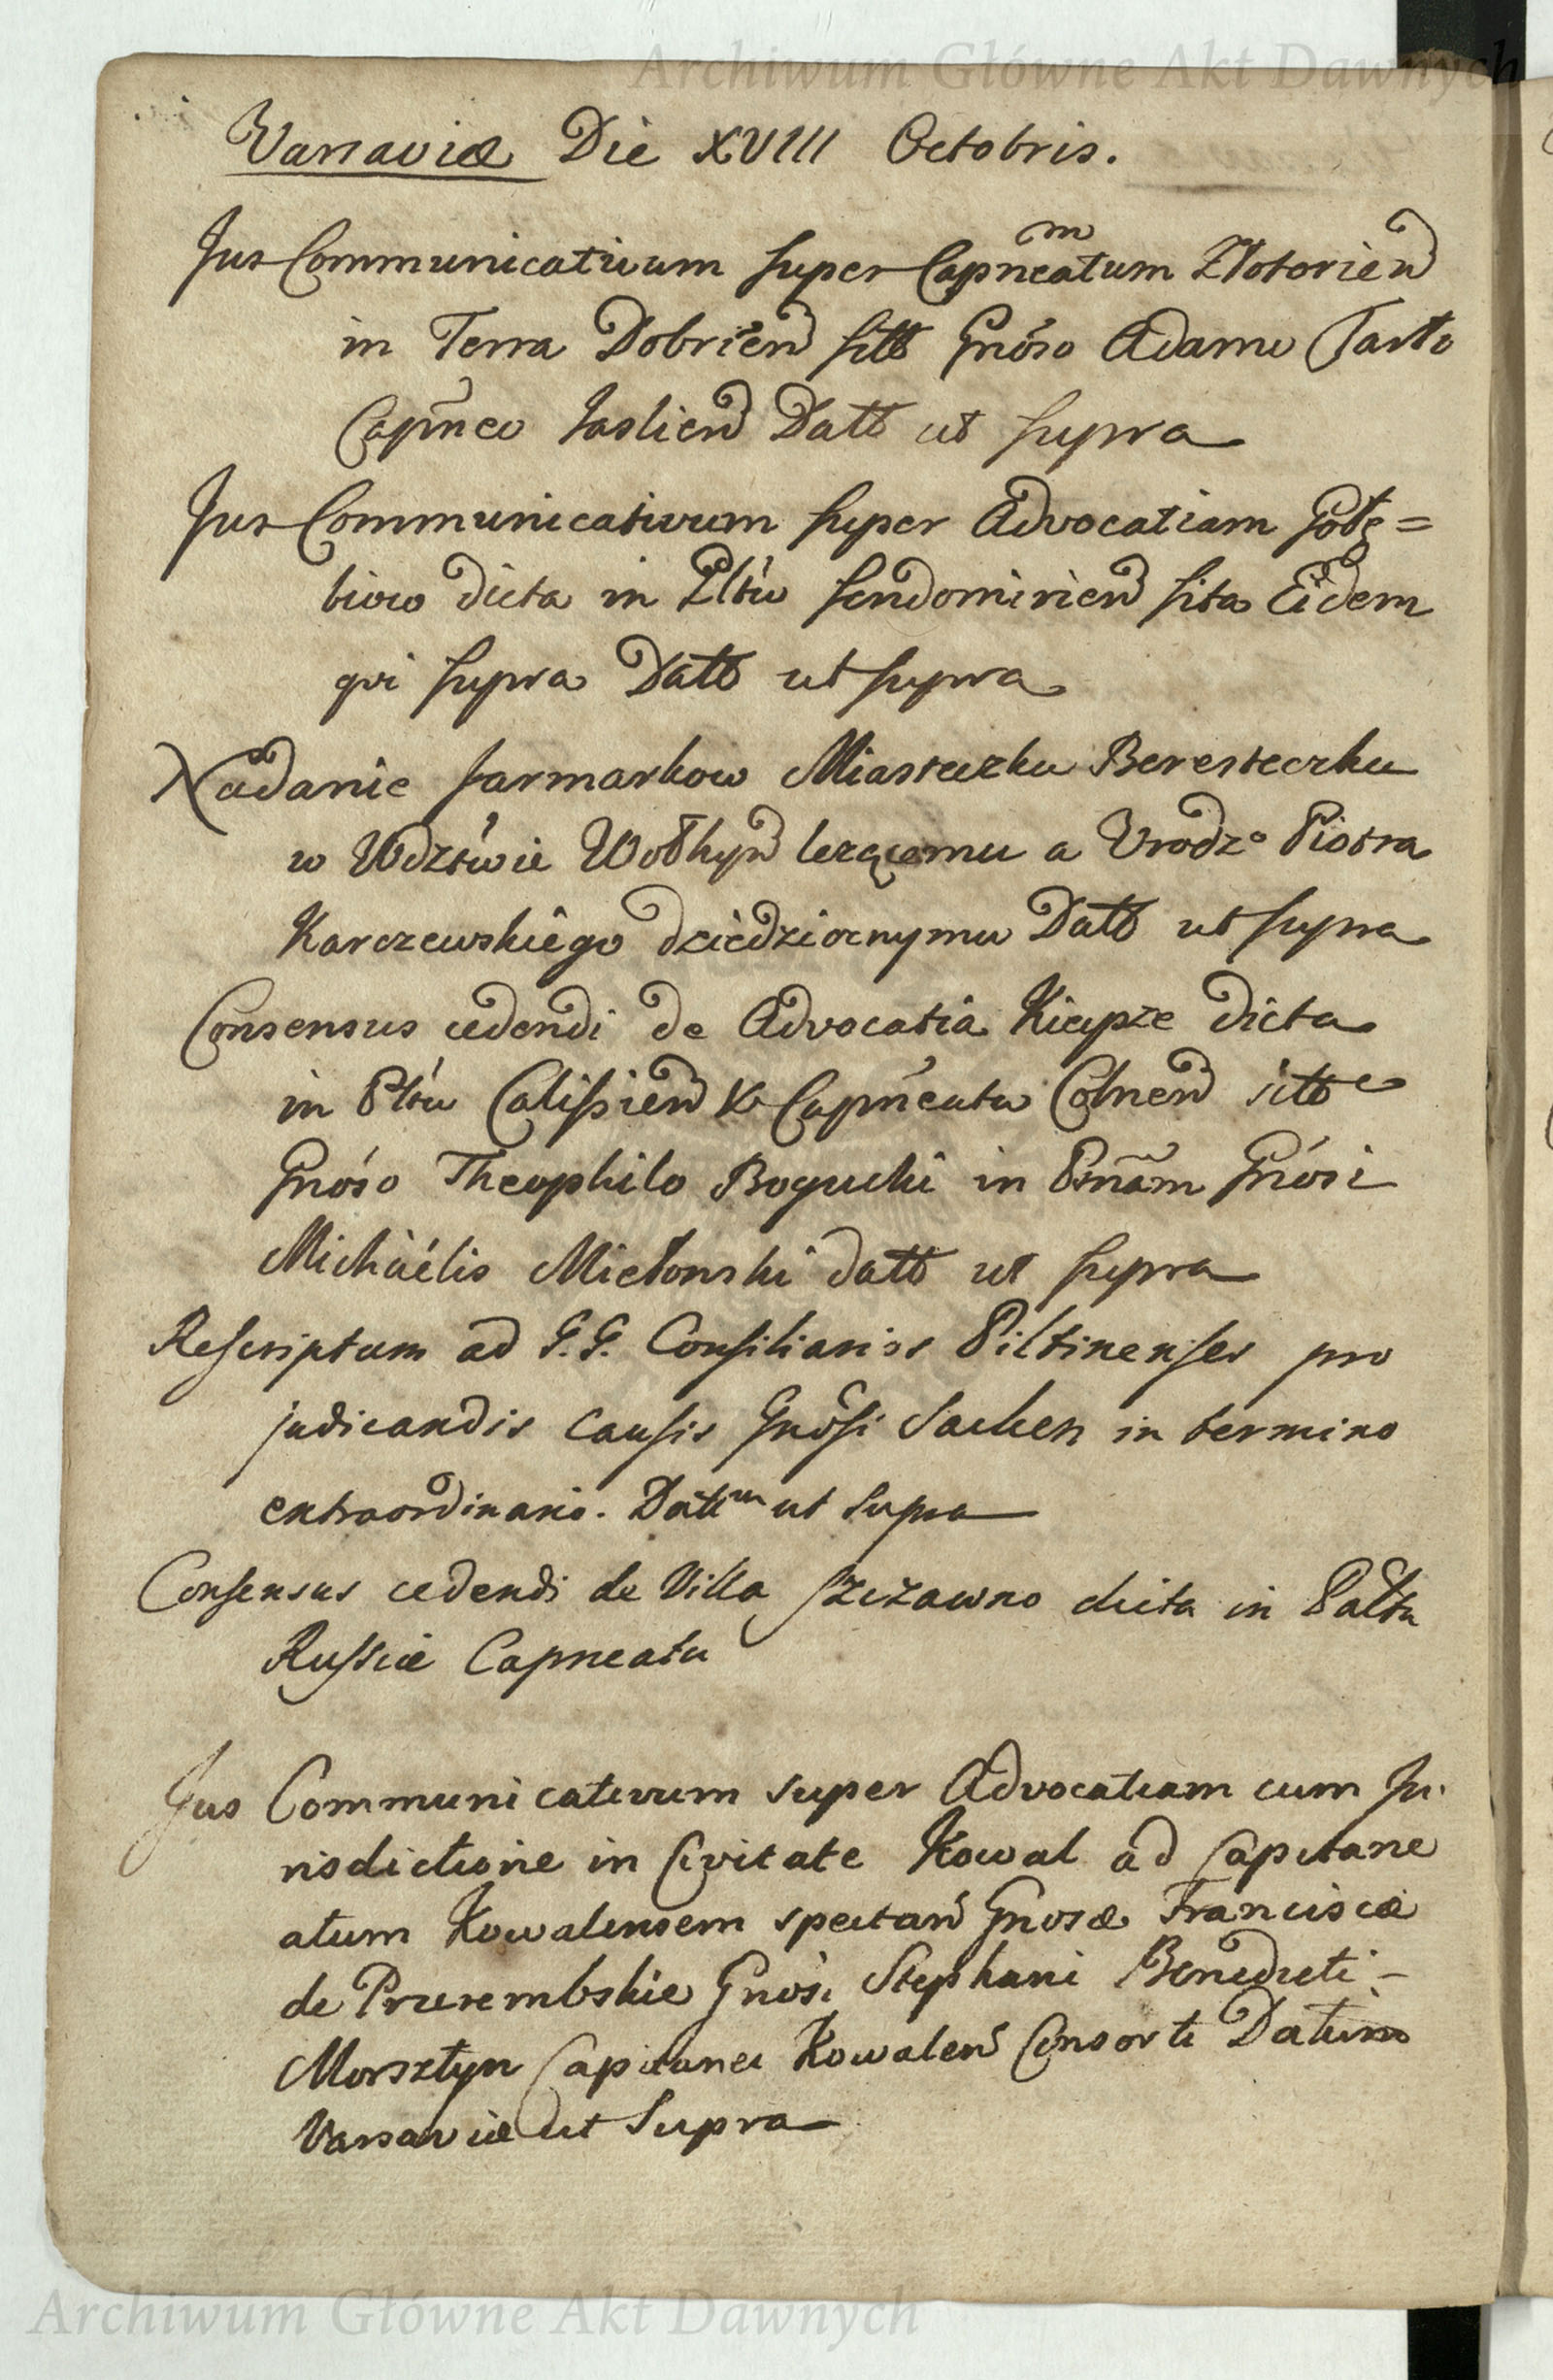 Archiwum Główne Akt Dawnych
Varsaviæ Die XVIII Octobris.
Jus Communicativum super Capneatum Złotorien
in Terra Dobrien sitt Gnóso Adamo Tarło
Capneo Jaslien Datt ut supra
Jus Communicativum super Advocatiam Gołę=
biow dicta in Pltu Sendomirien sita Eidem
qvi supra Datt ut supra
Nadanie Jarmarkow Miasteczku Beresteczku
w Wdztwie Wołhyn lezącemu a Urodzo Piotra
Karczewskiego dziedzicznymu Datt ut supra
Consensus cedendi de Advocatia Kiepze dicta
in Pltu Calissien & Capneatu Colnen sitte
Gnóso Theophilo Bogucki in Psnam Gnósi
Michaélis Miełonski datt ut supra
Rescriptum ad G.G. Consiliarios Piltinenses pro
judicandis causis Gnosi Sacken in termino
extraordinario. Dattm ut supra
Consensus cedendi de Villa Szczawno dicta in Paltu
Russiæ Capneatu
Jus Communicativum super Advocatiam cum Ju.
risdictione in Civitate Kowal ad Capitane
atum Kowalensem spectan Gnosæ Franciscæ
de Przerembskie Gnosi Stephani Benedicti -
Morsztyn Capitanei Kowalen Consorti Datum
Varsaviæ ut Supra
Archiwum Główne Akt Dawnych